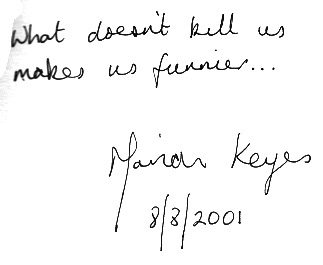 What doesn't kill us
makes us funnier...
Marian Keyes
8/8/2001